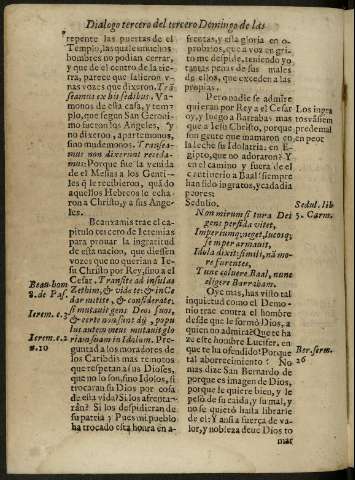 Dialogo tercero del tercero Domingo de las
repente las puertas de el
Templo, las quales muchos
hombres no podian cerrar,
y que de el centro de la tie-
rra, parece que salieron v-
nas vozes que dixeron. Trã-
seamus ex his sedibus. Va-
monos de esta casa, y tem-
plo, que segun San Geroni-
mo fueron los Angeles, y
no dixeron, apartemonos,
sino mudemonos. Transea-
mus non divenunt receda-
mus: Porque fue la venida
de el Mesias a los Genti-
les q̃ le recibieron, quã do
aquellos Hebreos le echa-
ron a Christo, y a sus Ange-
les.
Beauxamis trae el ca-
pitulo tercero de Ieremias
para prouar la ingratitud
de esta nacion, que diessen
vozes que no querian a Ie-
su Christo por Rey, sino a el
Cesar. Transite ad insulas
Zethim, & vidate: & in Ce
dar mitite, & considerate:
si mutauit gens Deos suos,
& certe non sunt dij, popu
lus autem meus mutauit glo
riam suam in Idolum. Pre-
guntad a los moradores de
los Caribdis mas remotos
que respetan a sus Dioses,
que no lo son, sino Idolos, si
trocaran su Dios por cosa
de esta vida? Si los afrenta-
rán? Si los despidieran de
su patria y Pues mi pueblo
ha trocado esta honra en a-
Beau-hom
3. de Pas.
Ierem. c. 3
Ierem. c. 2
n. 10
frentas, y esta gloria en o-
probrios, que a voz en gri-
to me despide, teniendo yo
tantas penas de sus males
de ellos, que exceden a las
propias.
Pero nadie se admire
quieran por Rey a el Cesar
oy, y luego a Barrabas mas
que a Iesu Christo, porque
son gente que mamaron en
la leche su Idolatria: en E-
gipto, que no adoraron? Y
en el camino y fuera de el
centinerio a Baal? siempre
han sido ingratos, y cada dia
peores.
Sedulio.
Non mirum si tura Dei
gens perfida vitet,
Imperium, neget, lucosq;
semper amauit,
Idola dixit simili, nã mo-
re furentes,
Tunc coluere Baal, nunc
eligere Barrabam.
Oye mas, has visto tal
inquietud como el Demo-
nio trae contra el hombre
desde que le formò Dios, a
quien no admira? Que te ha
ze este hombre Lucifer, en
que te ha ofendido? Porque
tal aborrecimiento? No
mas dize San Bernardo de
porque es imagen de Dios,
porque le quiere bien, y le
pesò de su caida, y su mal, y
no se quietò hasta librarle
de el: Y ansi a fuerça de va-
lor, y nobleza deue Dios to
mar
Los ingra
tos vã siem
pre demal
en peor
Sedul. lib
5. Carm.
Ber. serm.
26